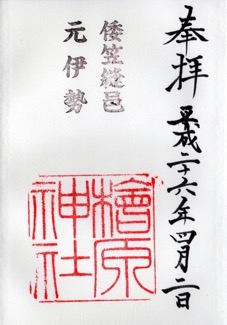 奉拝
平成二十六年四月二日
倭笠縫邑
元伊勢
檜原
神社